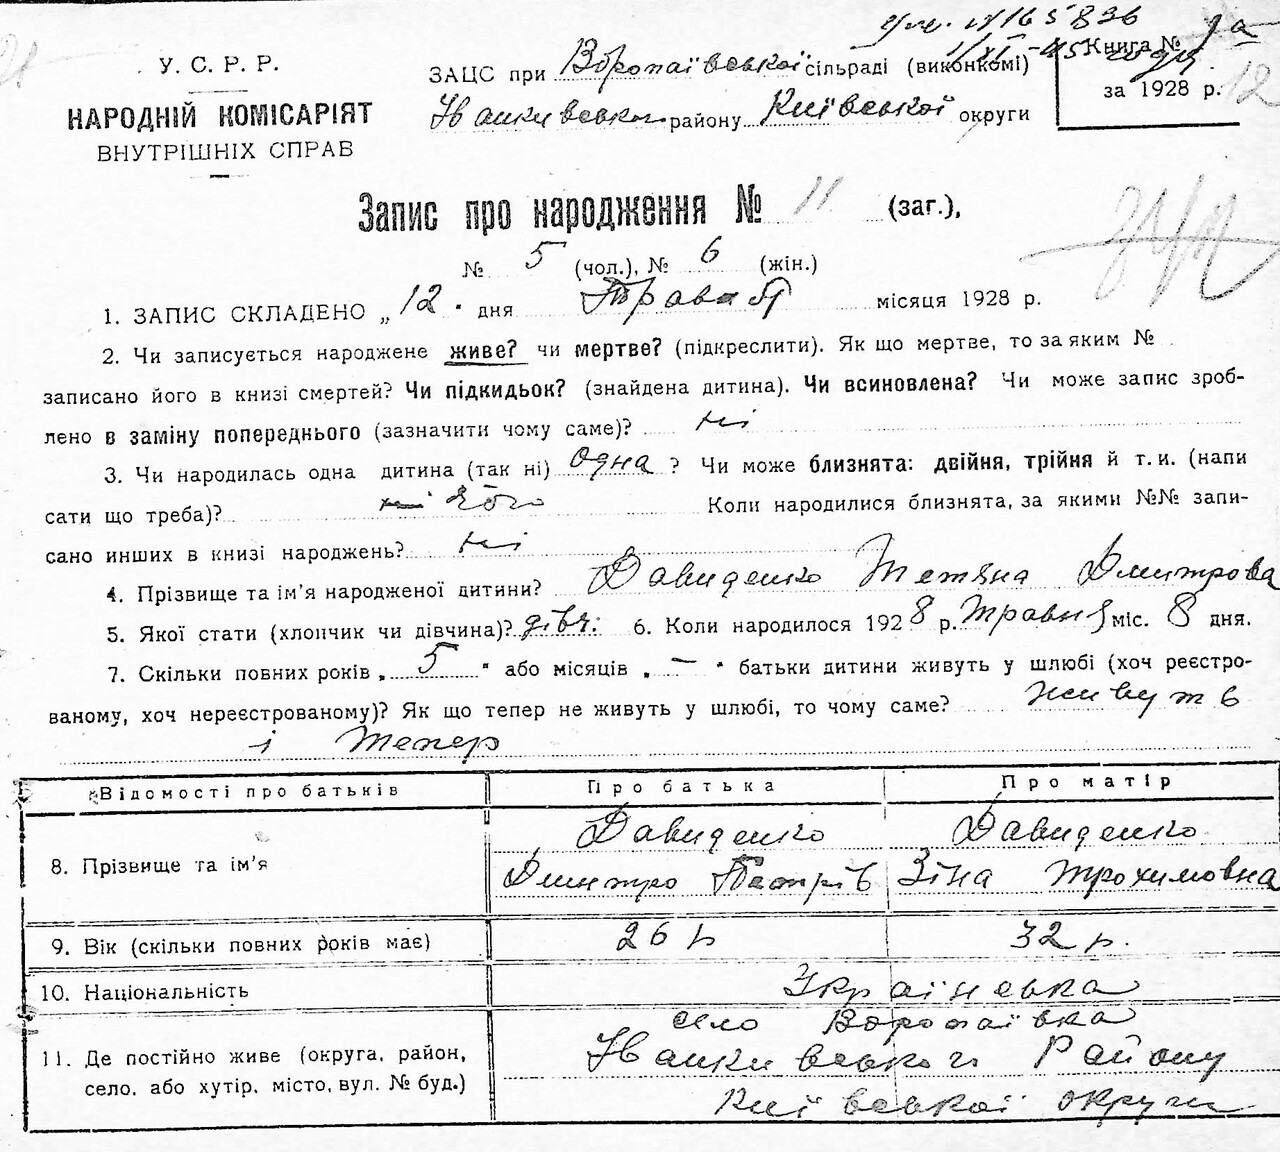 № 165836
У. С. Р. Р.
ЗАЦС при Воропаївської сільраді (виконкомі)
Книга № 1а
НАРОДНІЙ КОМІСАРІЯТ
Іванківського району Київської округи
за 1928 р.
12
ВНУТРІШНІХ СПРАВ
Запис про народження № 11 (заг.),
№ 5 (чол.), № 6 (жін.)
1. ЗАПИС СКЛАДЕНО „12" дня Травня місяця 1928 р.
2. Чи записується народжене живе? чи мертве? (підкреслити). Як що мертве, то за яким №
записано його в книзі смертей? Чи підкидьок? (знайдена дитина). Чи всиновлена? Чи може запис зроб-
лено в заміну попереднього (зазначити чому саме)? ні
3. Чи народилась одна дитина (так ні) одна ? Чи може близнята: двійня, трійня й т. и. (напи
сати що треба)? Коли народилися близнята, за якими №№ запи-
сано инших в книзі народжень? ні
4. Прізвище та ім'я народженої дитини? Давиденко Тетяна Дмитрова
5. Якої стати (хлопчик чи дівчина)? дівч. 6. Коли народилося 1928 р. травня міс. 8 дня.
7. Скільки повних років „5" або місяців „—" батьки дитини живуть у шлюбі (хоч реєстро-
ваному, хоч нереєстрованому)? Як що тепер не живуть у шлюбі, то чому саме? живуть
і тепер
Відомості про батьків Про батька Про матір
8. Прізвище та ім'я Давиденко Дмитро Петрів Давиденко Зіна Трохимовна
9. Вік (скільки повних років має) 26 р 32 р.
10. Національність Українська
11. Де постійно живе (округа, район, село, або хутір, місто, вул. № буд.) село Воропаївка
Іванківського Району
Київської округи